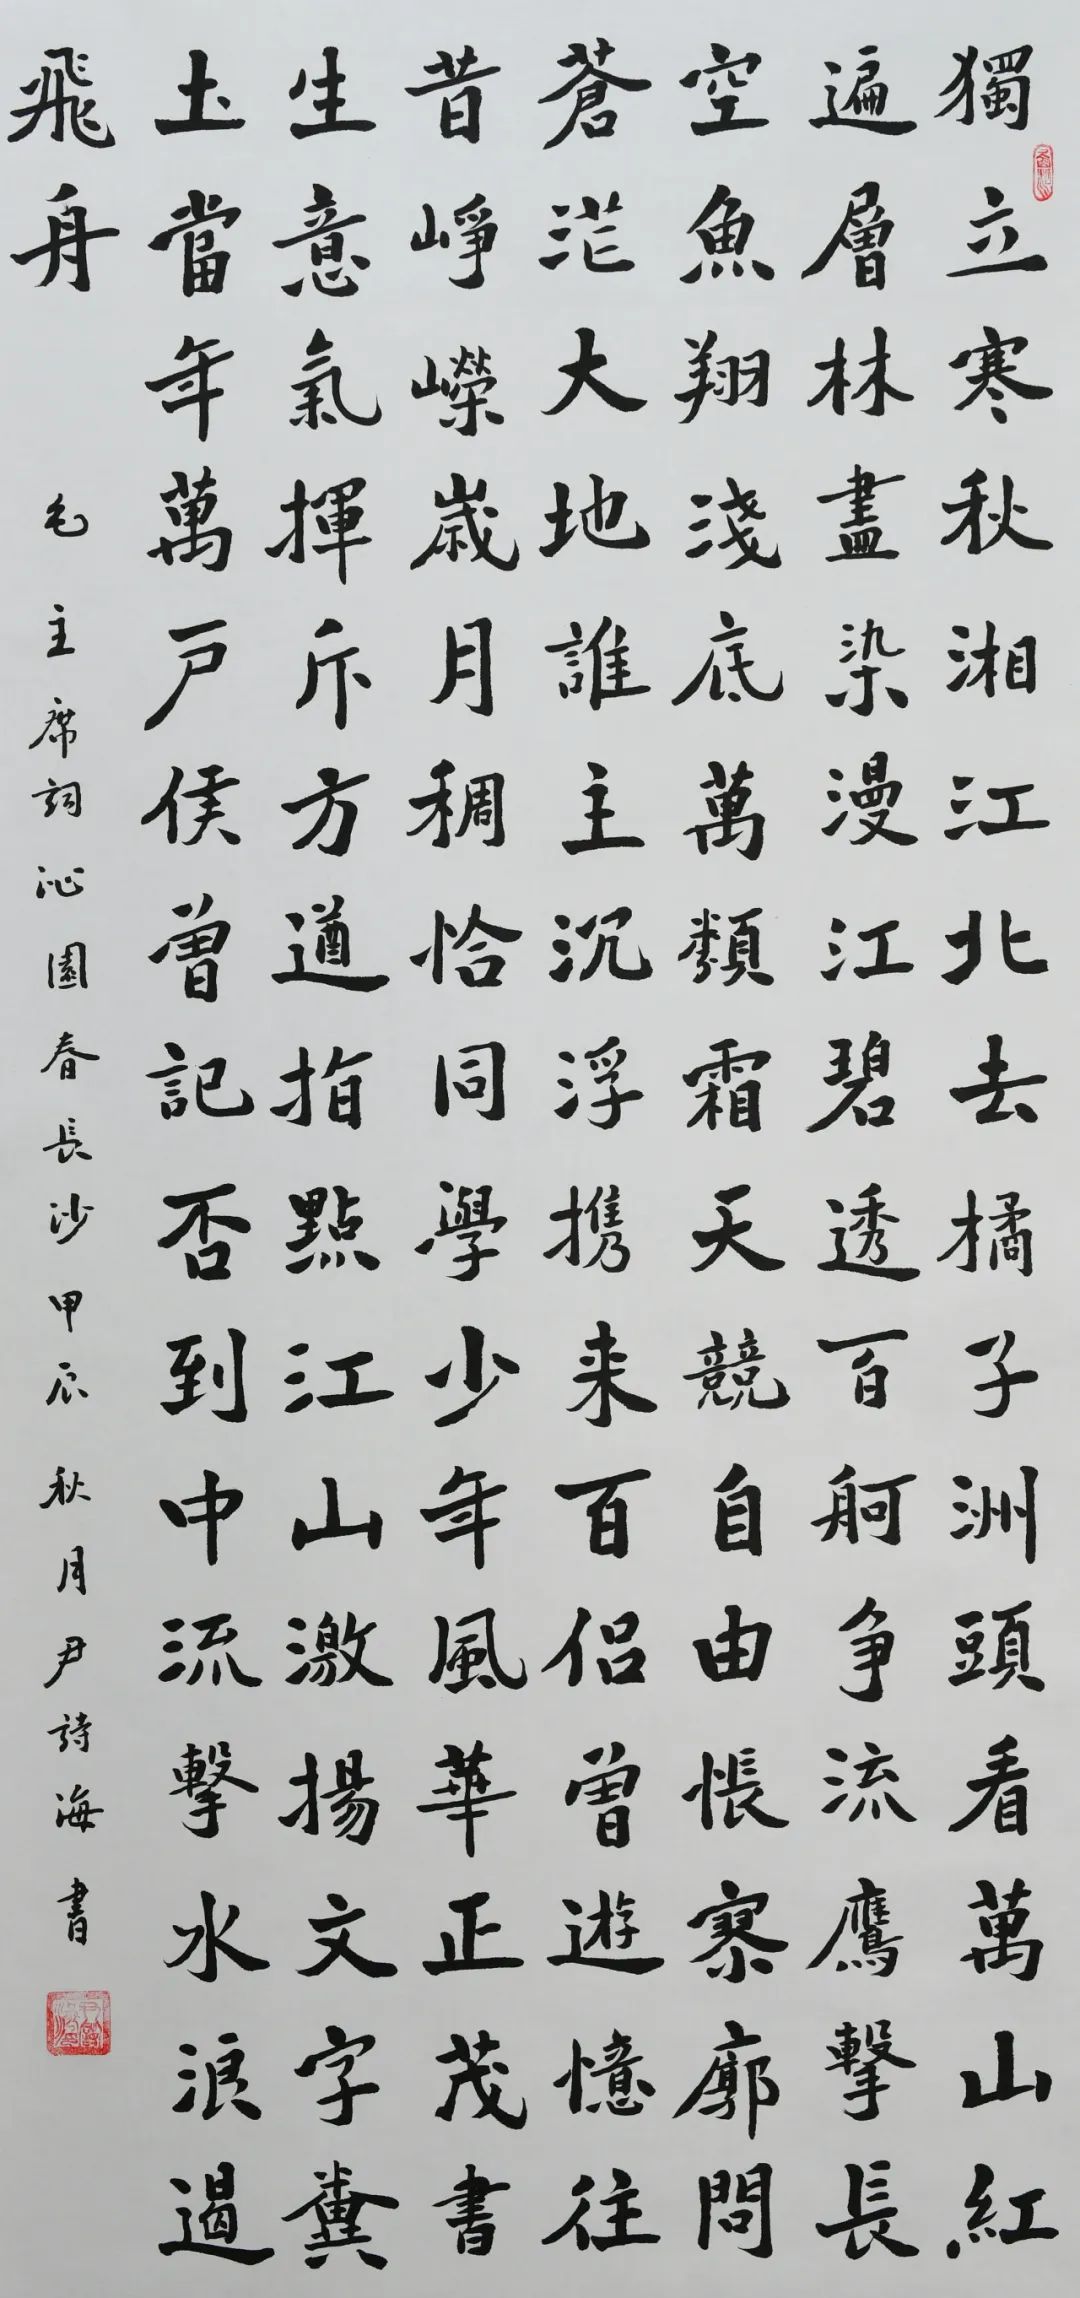 獨立寒秋湘江北去橘子洲頭看萬山紅
遍層林盡染漫江碧透百舸爭流鷹擊長
空魚翔淺底萬類霜天競自由悵寥廓問
蒼茫大地誰主沉浮攜来百侣曾遊憶往
昔崢嶸歲月稠恰同學少年風華正茂書
生意氣揮斥方遒指點江山激揚文字糞
土當年萬戶侯曾記否到中流擊水浪遏
飛舟
毛主席詞沁園春長沙甲辰秋月尹詩海書